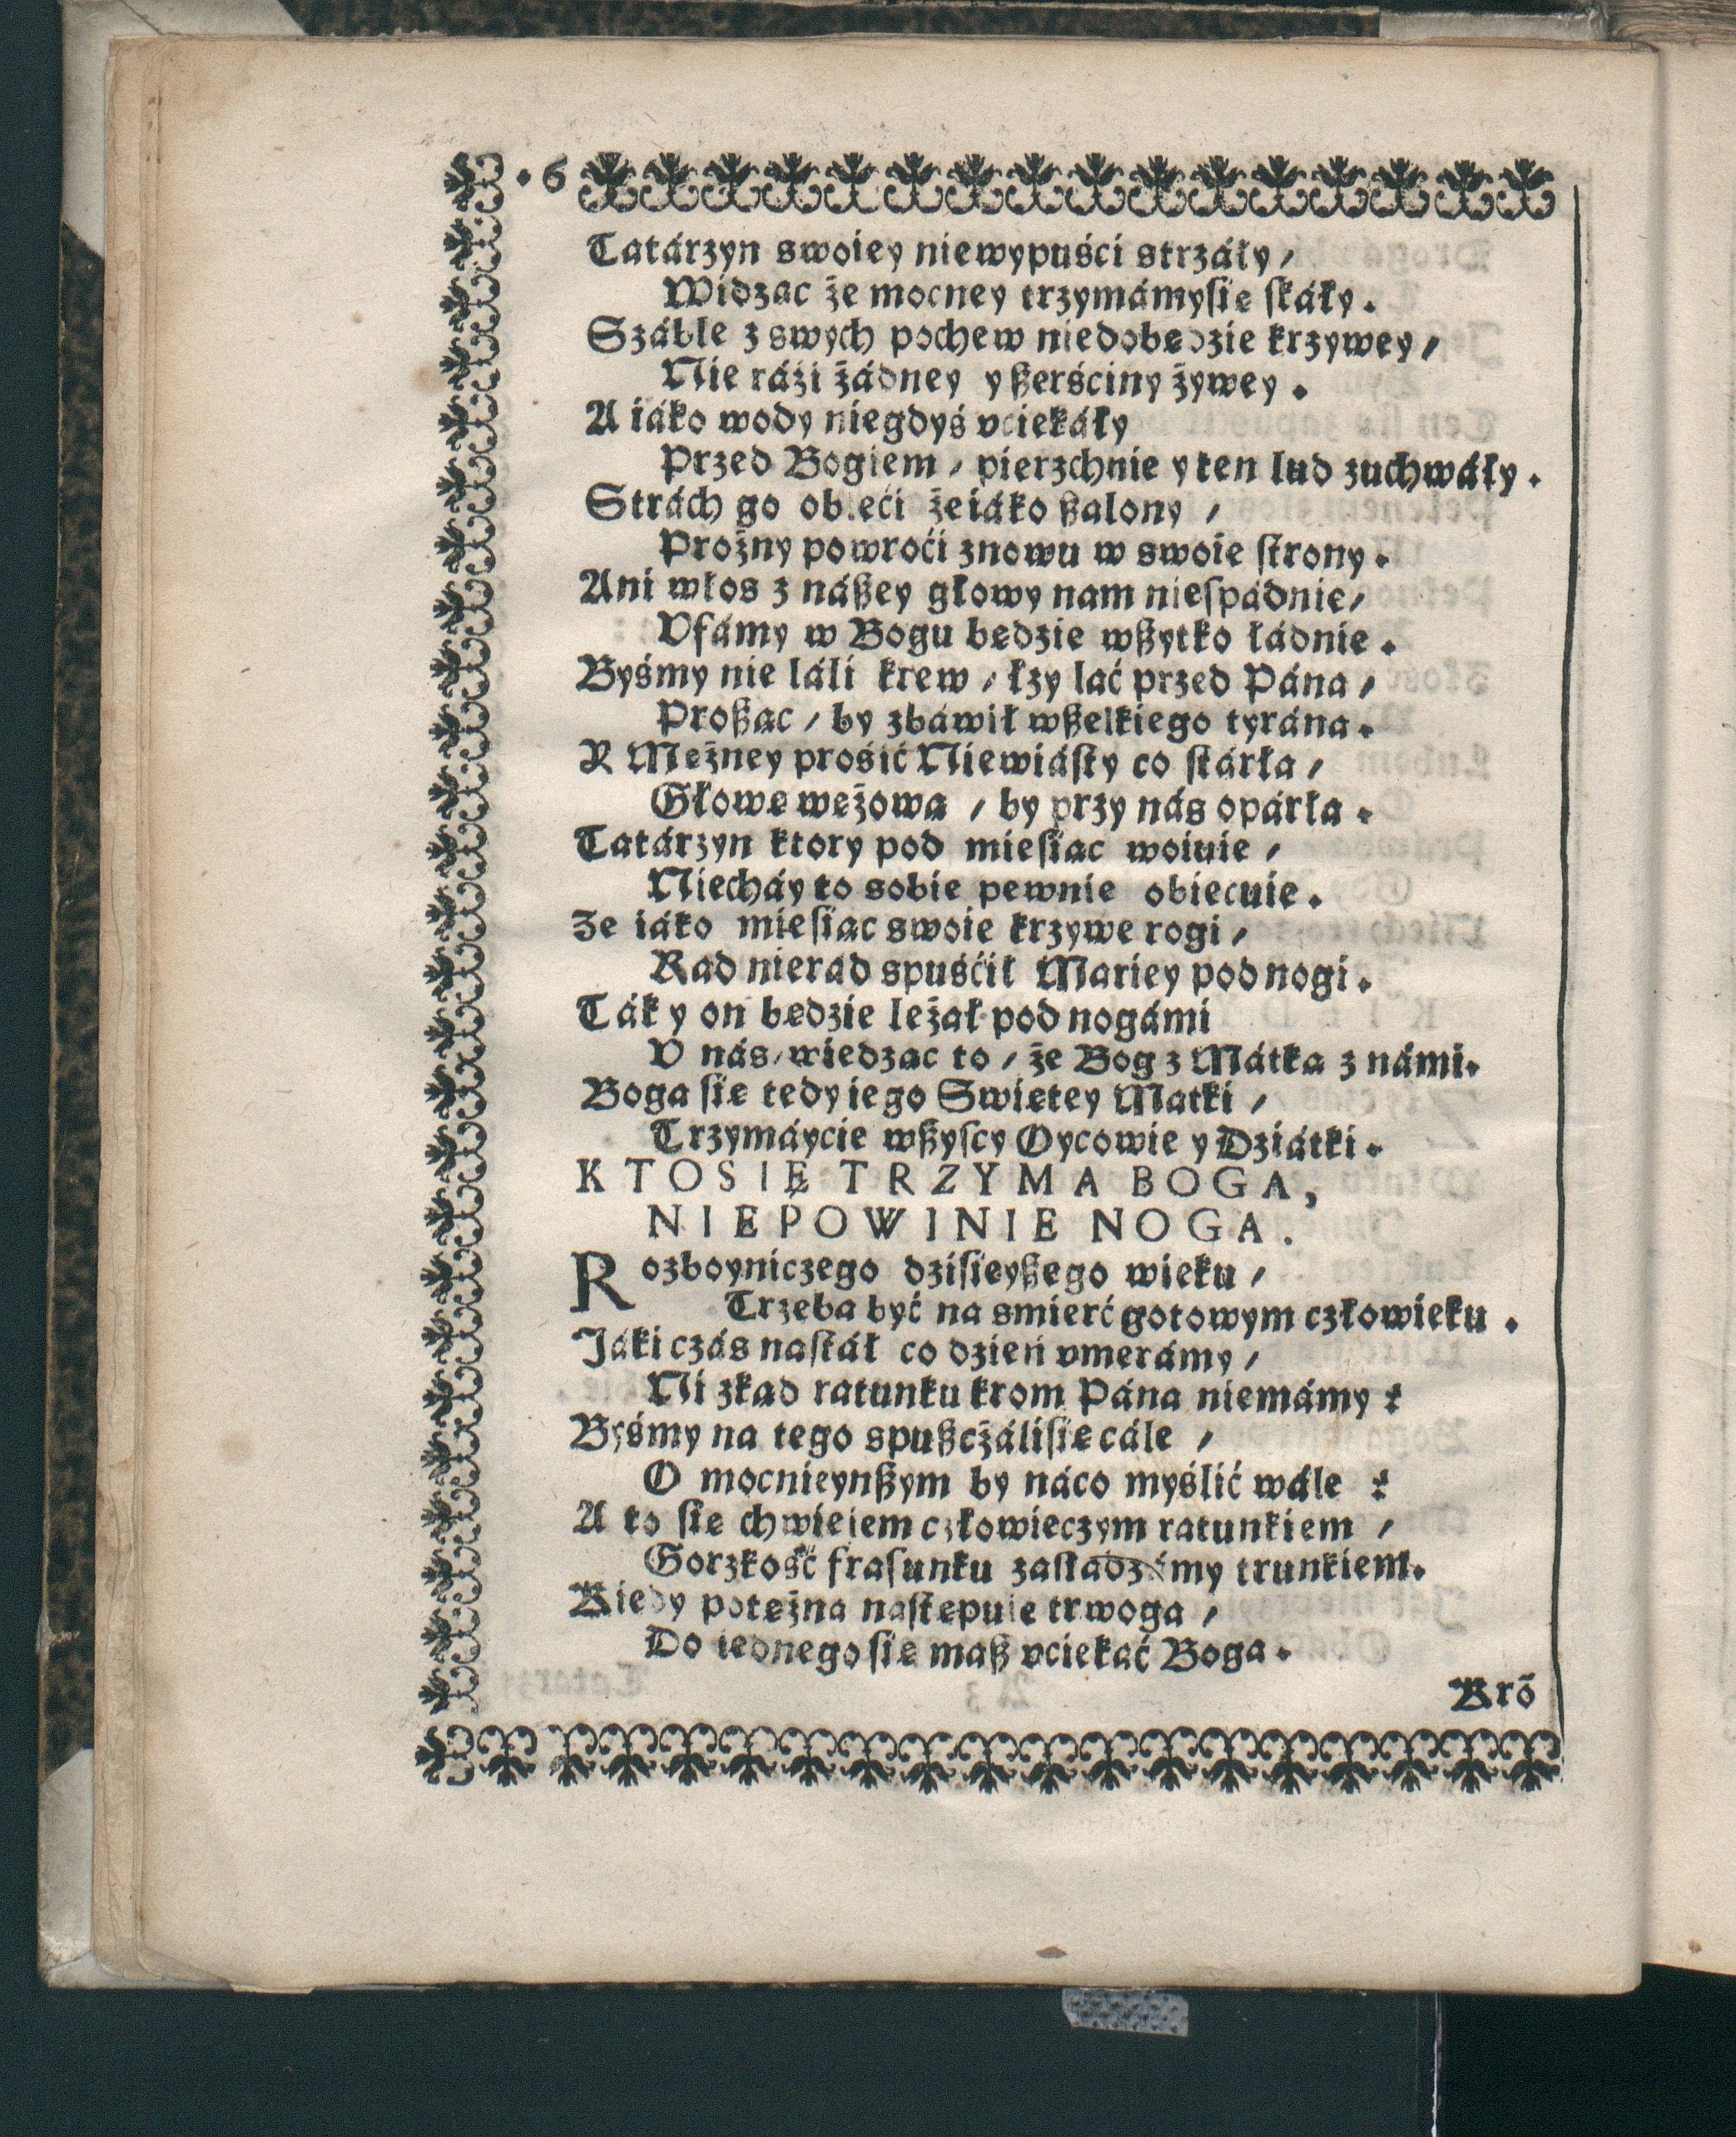 . 6
Tatárzyn swoiey niewypuści strzáły /
Widzac że mocney trzymámysie skáły.
Száble z swych pochew niedobędzie krzywey /
Nie ráźi żádney y ßerściny żywey.
A iáko wody niegdyś vciekáły
Przed Bogiem / pierzchnie y ten lud zuchwáły.
Strách go obleći że iáko ßalony /
Prożny powroći znowu w swoie strony.
Ani włos z náßey głowy nam niespádnie /
Vfámy w Bogu będzie wßytko łádnie.
Byśmy nie láli krew / łzy lać przed Pána /
Proßąc / by zbáwił wßelkiego tyrána.
Y Mężney prośić Niewiásty co stárła /
Głowę wężową / by przy nás opárła.
Tatárzyn ktory pod miesiąc woiuie /
Niecháy to sobie pewnie obiecuie.
Ze iáko miesiąc swoie krzywe rogi /
Rad nierad spuśćił Mariey pod nogi.
Ták y on będzie leżał pod nogámi
V nás / wiedząc to / że Bog z Mátką z námi.
Boga się tedy iego Swiętey Matki /
Trzymáycie wßyscy Oycowie y Dziátki.
KTOSIĘ TRZYMA BOGA,
NIEPOWINIE NOGA.
Rozboyniczego dzisieyßego wieku /
Trzeba być na smierć gotowym człowieku.
Jáki czás nastáł co dzień vmerámy /
Ni zkąd ratunku krom Pána niemámy :
Byśmy na tego spußczálisię cále /
O mocnieynßym by náco myślić wále :
A to się chwieiem człowieczym ratunkiem /
Gorzkość frasunku zasładzámy trunkiem.
Kiedy potężna następuie trwoga /
Do iednego się maß vciekać Boga.
Krõ